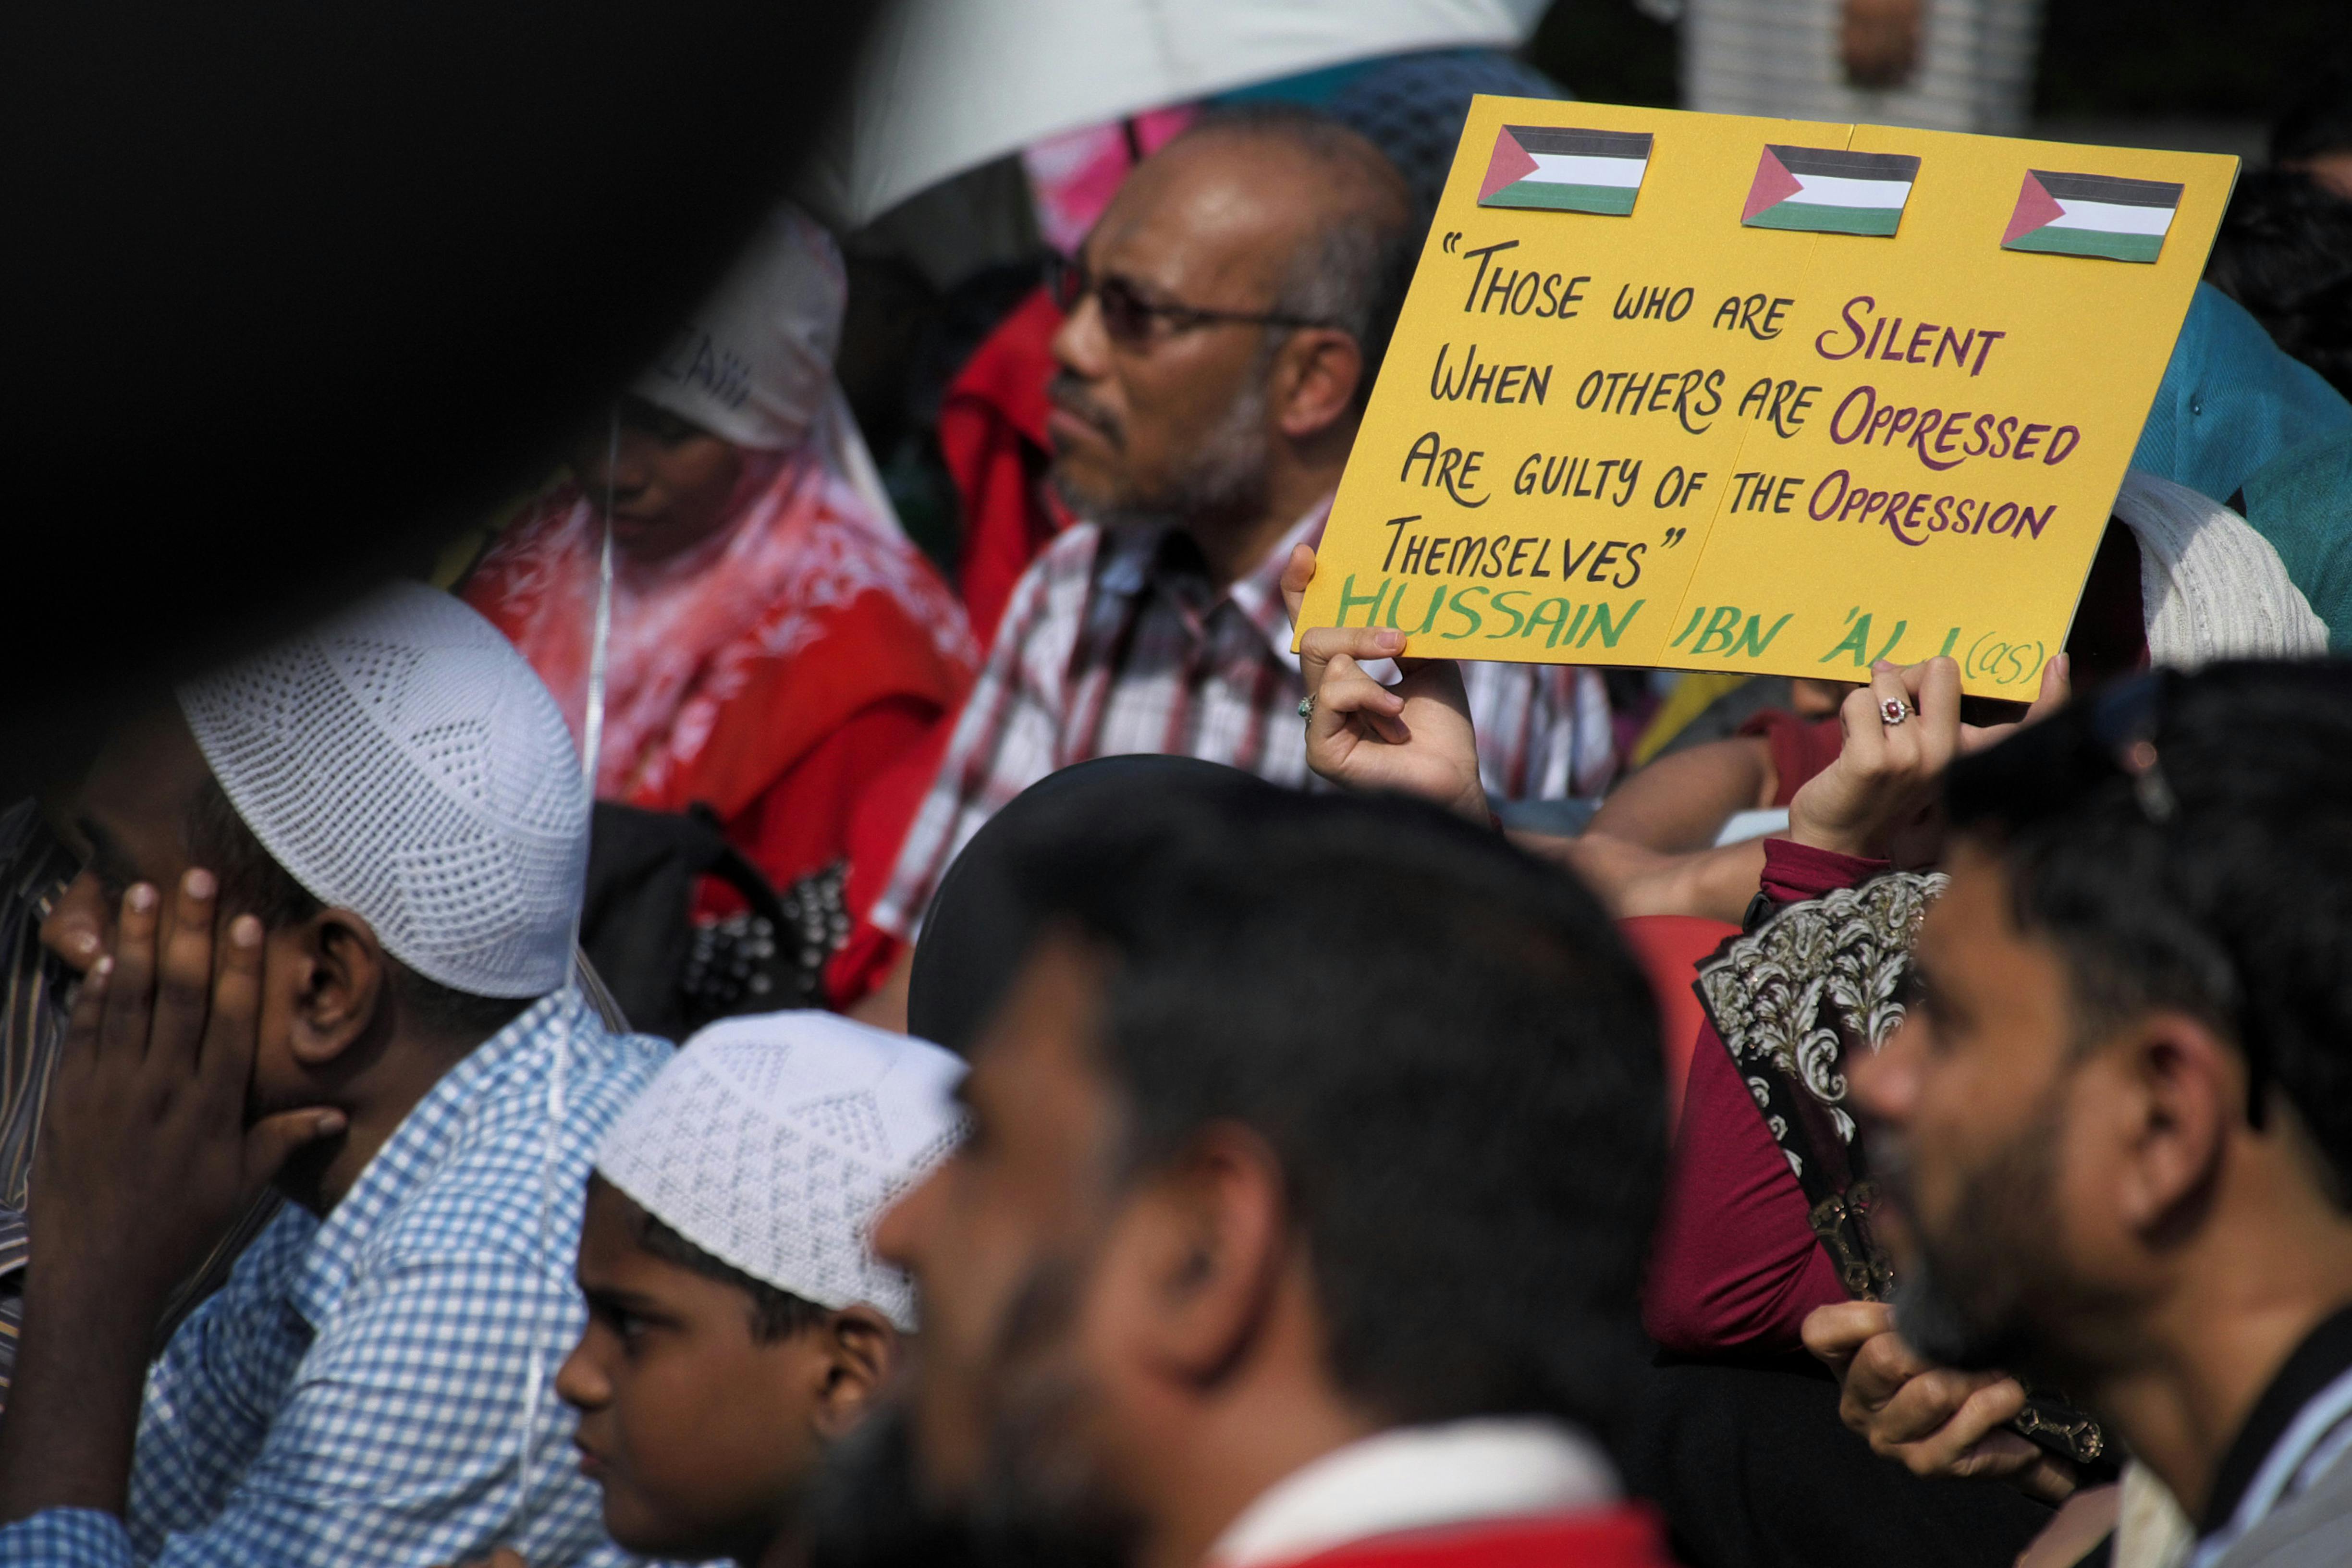 "THOSE WHO ARE SILENT
WHEN OTHERS ARE OPPRESSED
ARE GUILTY OF THE OPPRESSION
THEMSELVES"
HUSSAIN IBN 'ALI (as)